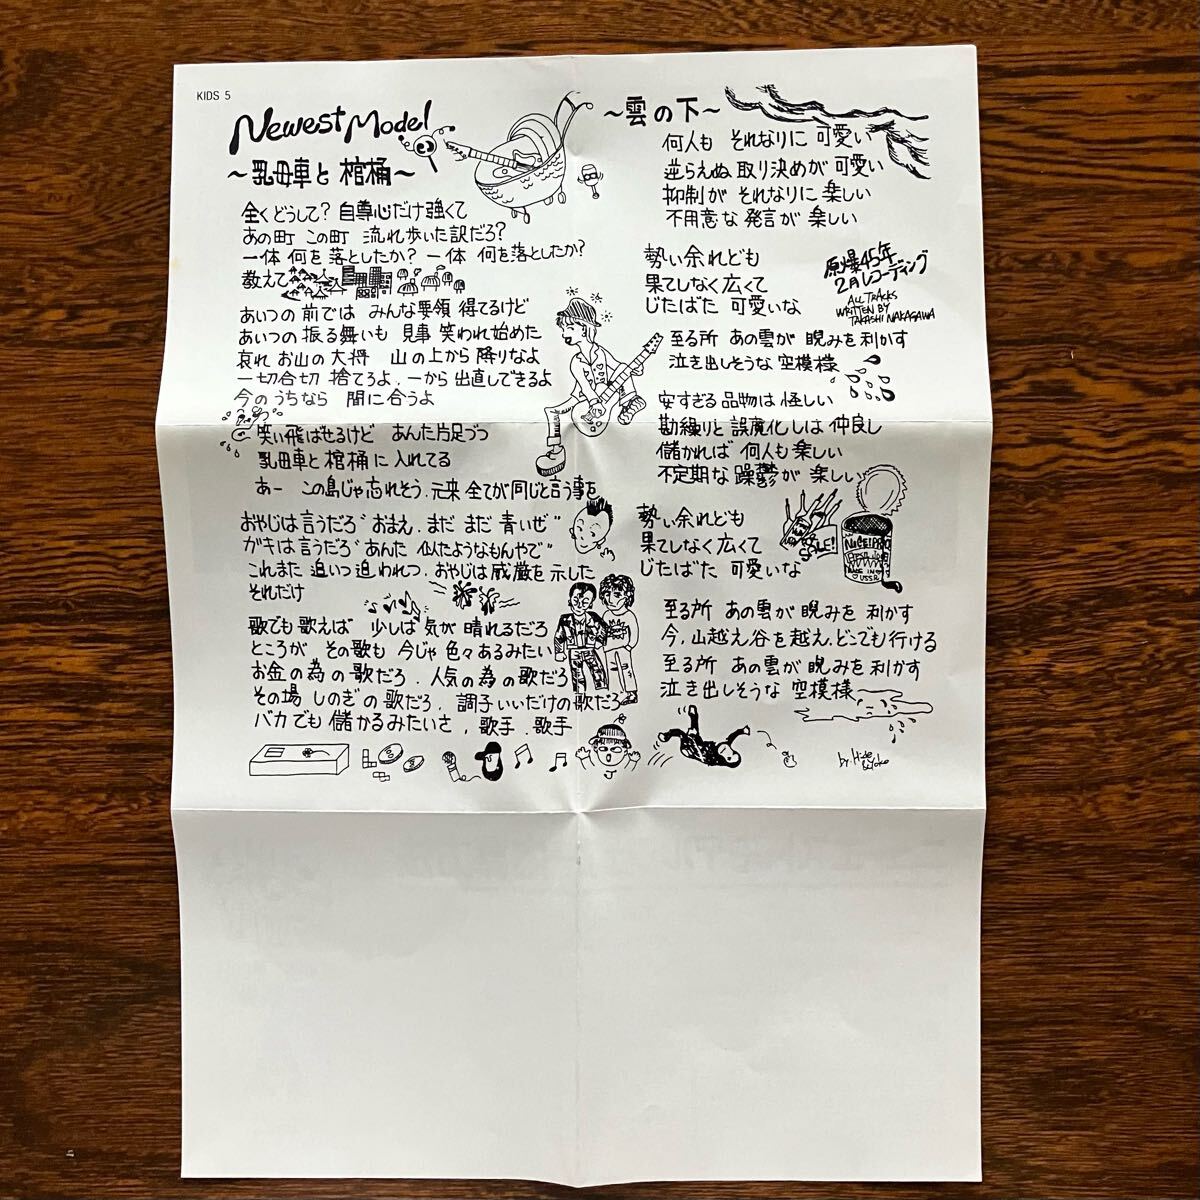 KIDS 5
Newest Model
～乳母車と棺桶～
全くどうして? 自尊心だけ強くて
あの町 この町 流れ歩いた訳だろ?
一体 何を落としたか? 一体 何を落としたか?
教えて
あいつの前では みんな要領 得てるけど
あいつの振る舞いも 見事 笑われ始めた
哀れ お山の大将 山の上から降りなよ
一切合切 捨てろよ、一から出直しできるよ
今のうちなら 間に合うよ
笑い飛ばせるけど あんた片足づつ
乳母車と棺桶に入れてる
あー この島じゃ忘れそう、元来 全てが同じと言う事を
おやじは言うだろ“おまえ、まだ まだ 青いぜ”
ガキは言うだろ“あんた 似たようなもんやで”
これまた 追いつ追われつ、おやじは威厳を示した
それだけ
歌でも歌えば 少しは気が晴れるだろ
ところが その歌も 今じゃ色々あるみたい
お金の為の歌だろ、人気の為の歌だろ
その場しのぎの歌だろ、調子いいだけの歌だろ
バカでも儲かるみたいさ、歌手、歌手
～雲の下～
何人も それなりに可愛い
逆らえぬ取り決めが可愛い
抑制が それなりに楽しい
不用意な発言が 楽しい
勢い余れども
果てしなく広くて
じたばた 可愛いな
原爆45年
2月レコーディング
ALL TRACKS
WRITTEN BY
TAKASHI NAKAGAWA
至る所 あの雲が 睨みを利かす
泣き出しそうな 空模様
安すぎる品物は怪しい
勘繰りと誤魔化しは仲良し
儲かれば 何人も楽しい
不定期な躁鬱が 楽しい
勢い余れども
果てしなく広くて
じたばた 可愛いな
SALE!
NICE! PRO
MADE IN
USSR
至る所 あの雲が 睨みを 利かす
今、山越え谷を越え、どこでも行ける
至る所 あの雲が 睨みを利かす
泣き出しそうな 空模様
by. Hide